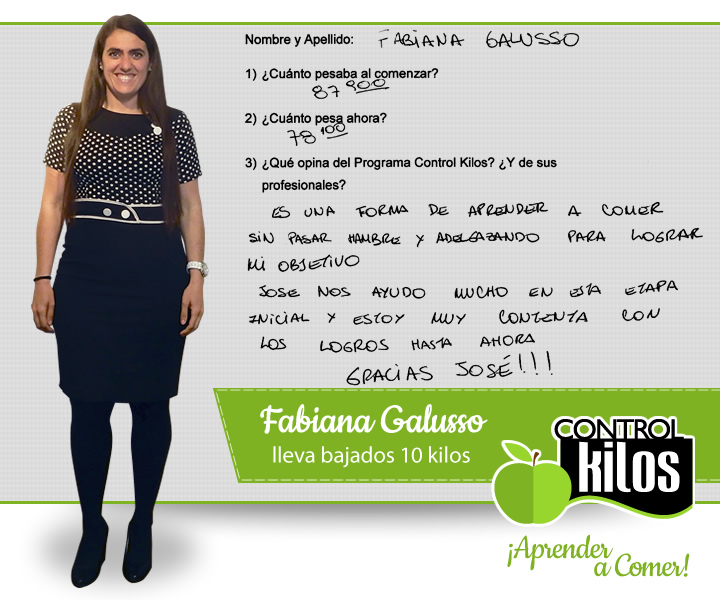 Nombre y Apellido: FABIANA GALUSSO
1) ¿Cuánto pesaba al comenzar?
87 900
2) ¿Cuánto pesa ahora?
78 100
3) ¿Qué opina del Programa Control Kilos? ¿Y de sus
profesionales?
ES UNA FORMA DE APRENDER A COMER
SIN PASAR HAMBRE Y ADELGAZANDO PARA LOGRAR
MI OBJETIVO
JOSE NOS AYUDO MUCHO EN ESTA ETAPA
INICIAL Y ESTOY MUY CONTENTA CON
LOS LOGROS HASTA AHORA
GRACIAS JOSÉ!!!
Fabiana Galusso
lleva bajados 10 kilos
CONTROL
kilos
¡Aprender
a Comer!